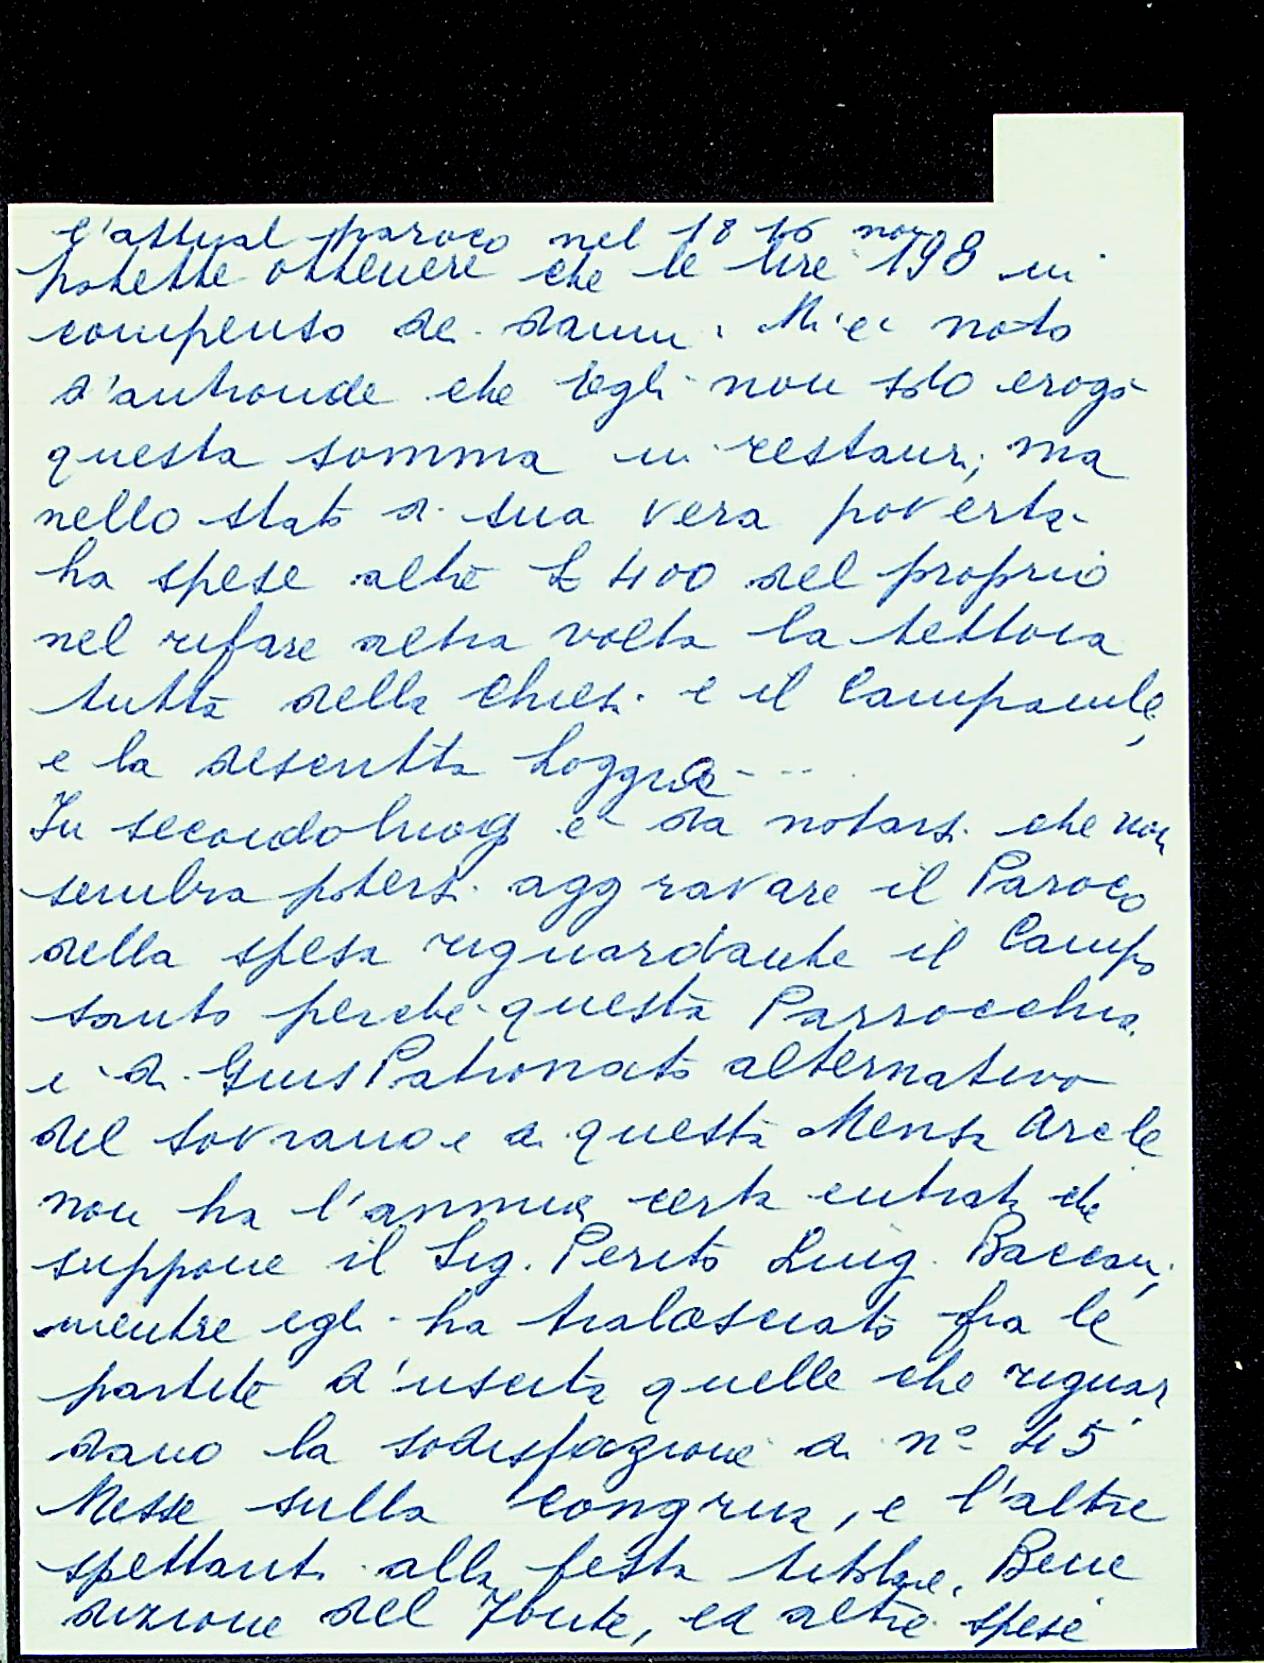 l'attual paroco nel 1816 non
potette ottenere che le lire 198 in
compenso dei danni. Mi è noto
d'altronde che Egli non solo erogò
questa somma in restauri, ma
nello stato di sua vera povertà
ha spese altre £ 400 del proprio
nel rifare altra volta la tettoia
tutta della Chiesa e il Campanile,
e la descritta Loggia - - - .
In secondo luogo è da notarsi che non
sembra potersi aggravare il Paroco
della spesa riguardante il Campo
santo perchè questa Parrocchia
è di Gius Patronato alternativo
del sovrano e di questa Mensa Arcle
non ha l'annua certa entrata che
suppone il Sig. Perito Luigi Baccani,
mentre egli ha tralasciato fra le
partite d'uscita quelle che riguar
dano la sodisfazione di n° 45
Messe sulla Congrua, e l'altre
spettanti alla festa titolare, Bene
dizione del Fonte, ed altre spese